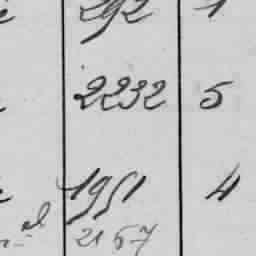 292 1
2232 5
1951 4
21 57